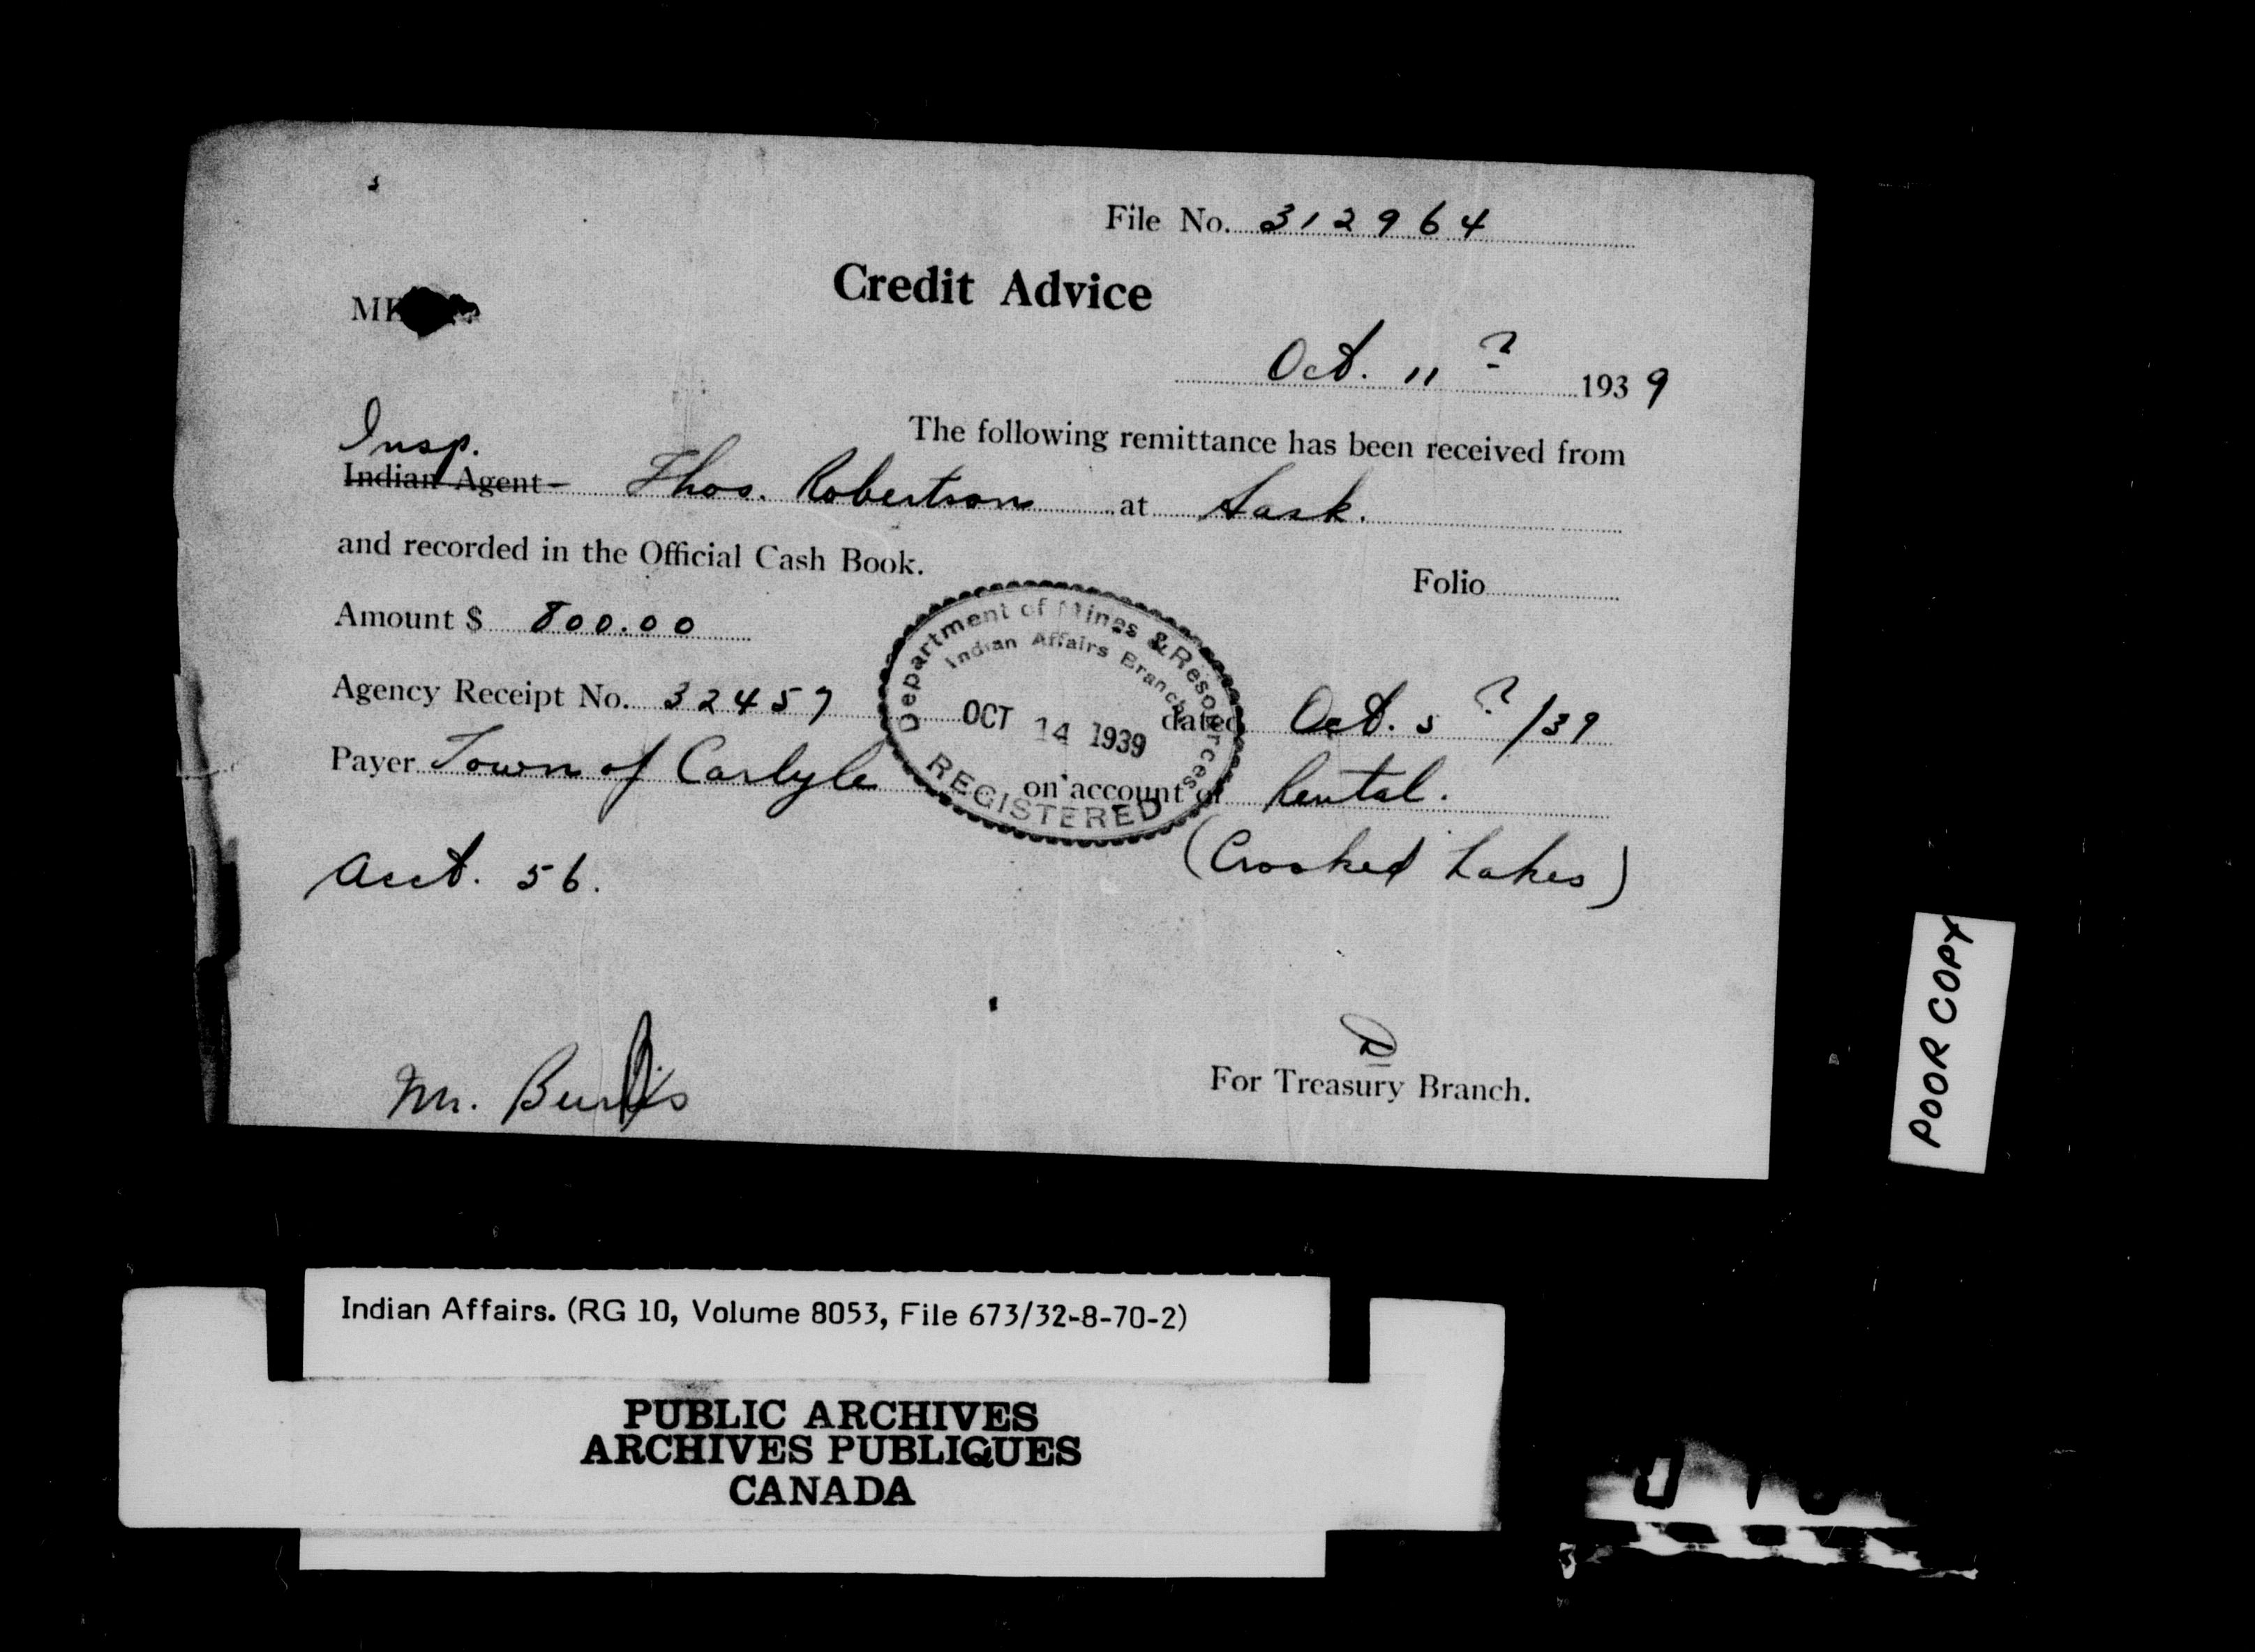 File No. 312964
Credit Advice
Oct. 11 1939
The following remittance has been received from
Insp.
Indian Agent Thos. Robertson at Sask.
and recorded in the Official Cash Book.
Folio
Amount $ 800.00
Department of Mines & Resources
Indian Affairs Branch
OCT 14 1939
REGISTERED
Agency Receipt No. 32457 dated Oct. 5 /39
Payer Town of Carlyle on account of Rental.
(Crooked Lakes)
Acct. 56.
Mr.
For Treasury Branch.
POOR COPY
Indian Affairs. (RG 10, Volume 8053, File 673/32-8-70-2)
PUBLIC ARCHIVES
ARCHIVES PUBLIQUES
CANADA